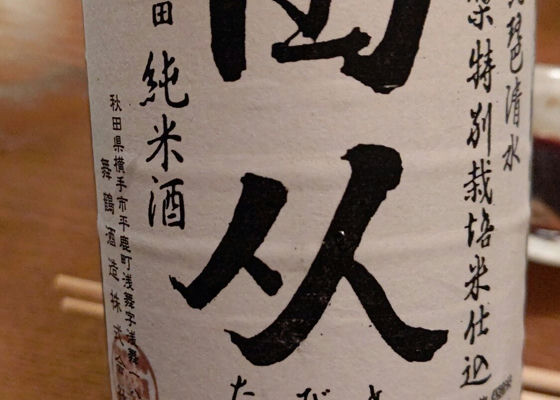 琶清水
特別栽培米仕込
田从
たび
田 純米酒
秋田県横手市平鹿町浅舞字浅舞一
舞鶴酒造株式会